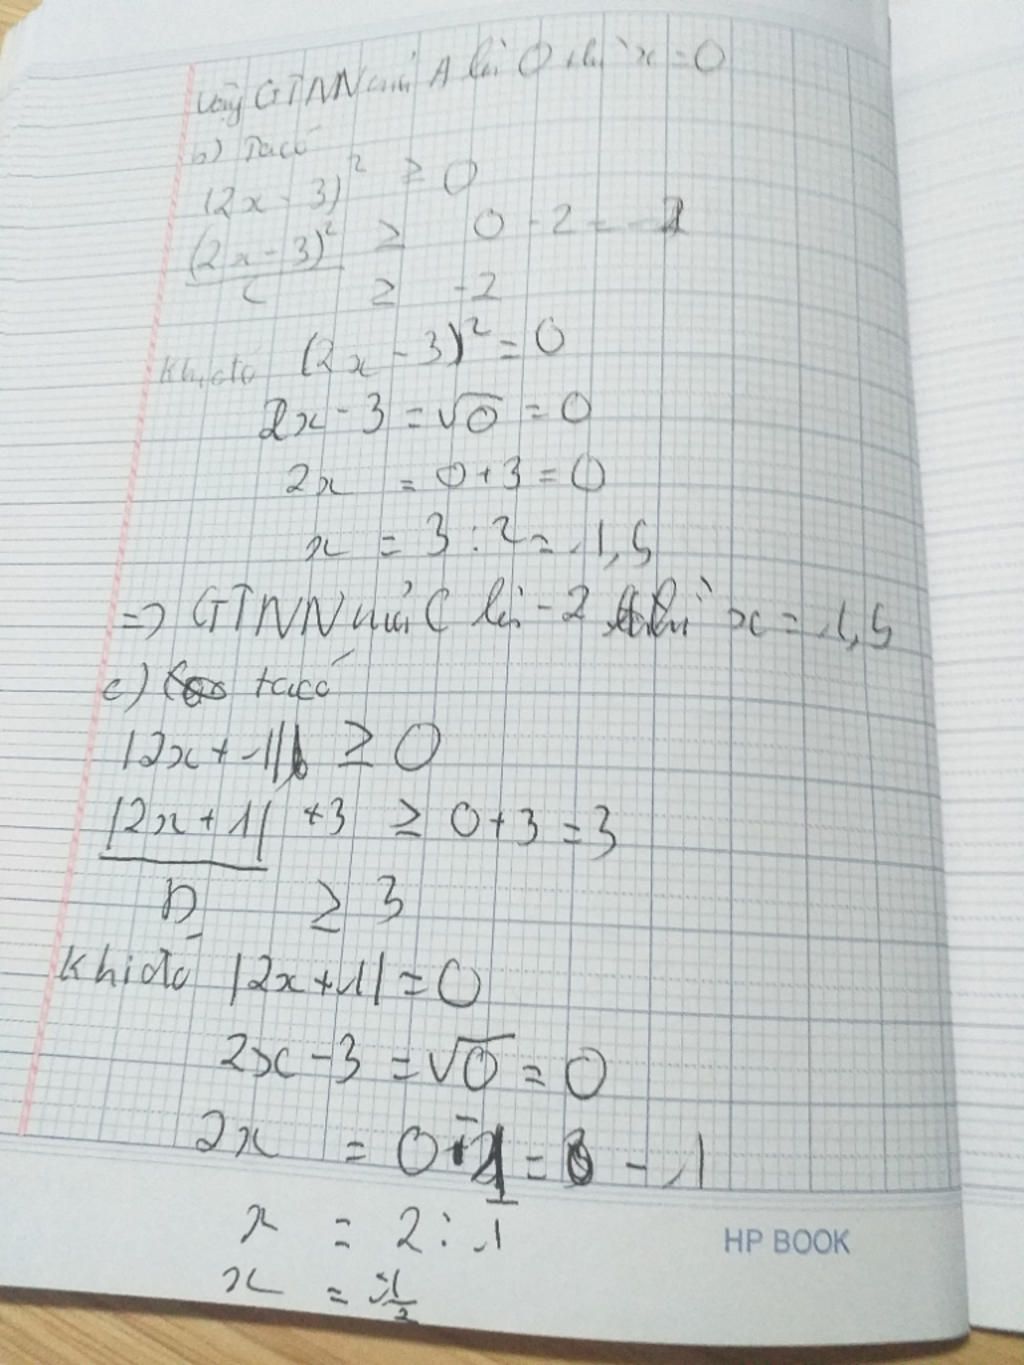 Vậy GTNN của A là 0 khi x = 0
b) Ta có
(2x - 3)² ≥ 0
(2x - 3)² ≥ 0 - 2 = -2
C ≥ -2
Khi đó (2x - 3)² = 0
2x - 3 = √0 = 0
2x = 0 + 3 = 0
x = 3 : 2 = 1,5
=> GTNN của C là -2 khi x = 1,5
c) ta có
|2x + 1| ≥ 0
|2x + 1| + 3 ≥ 0 + 3 = 3
D ≥ 3
Khi đó |2x + 1| = 0
2x - 3 = √0 = 0
2x = 0 - 1 = - 1
x = 2 : 1
x = -1/2
HP BOOK